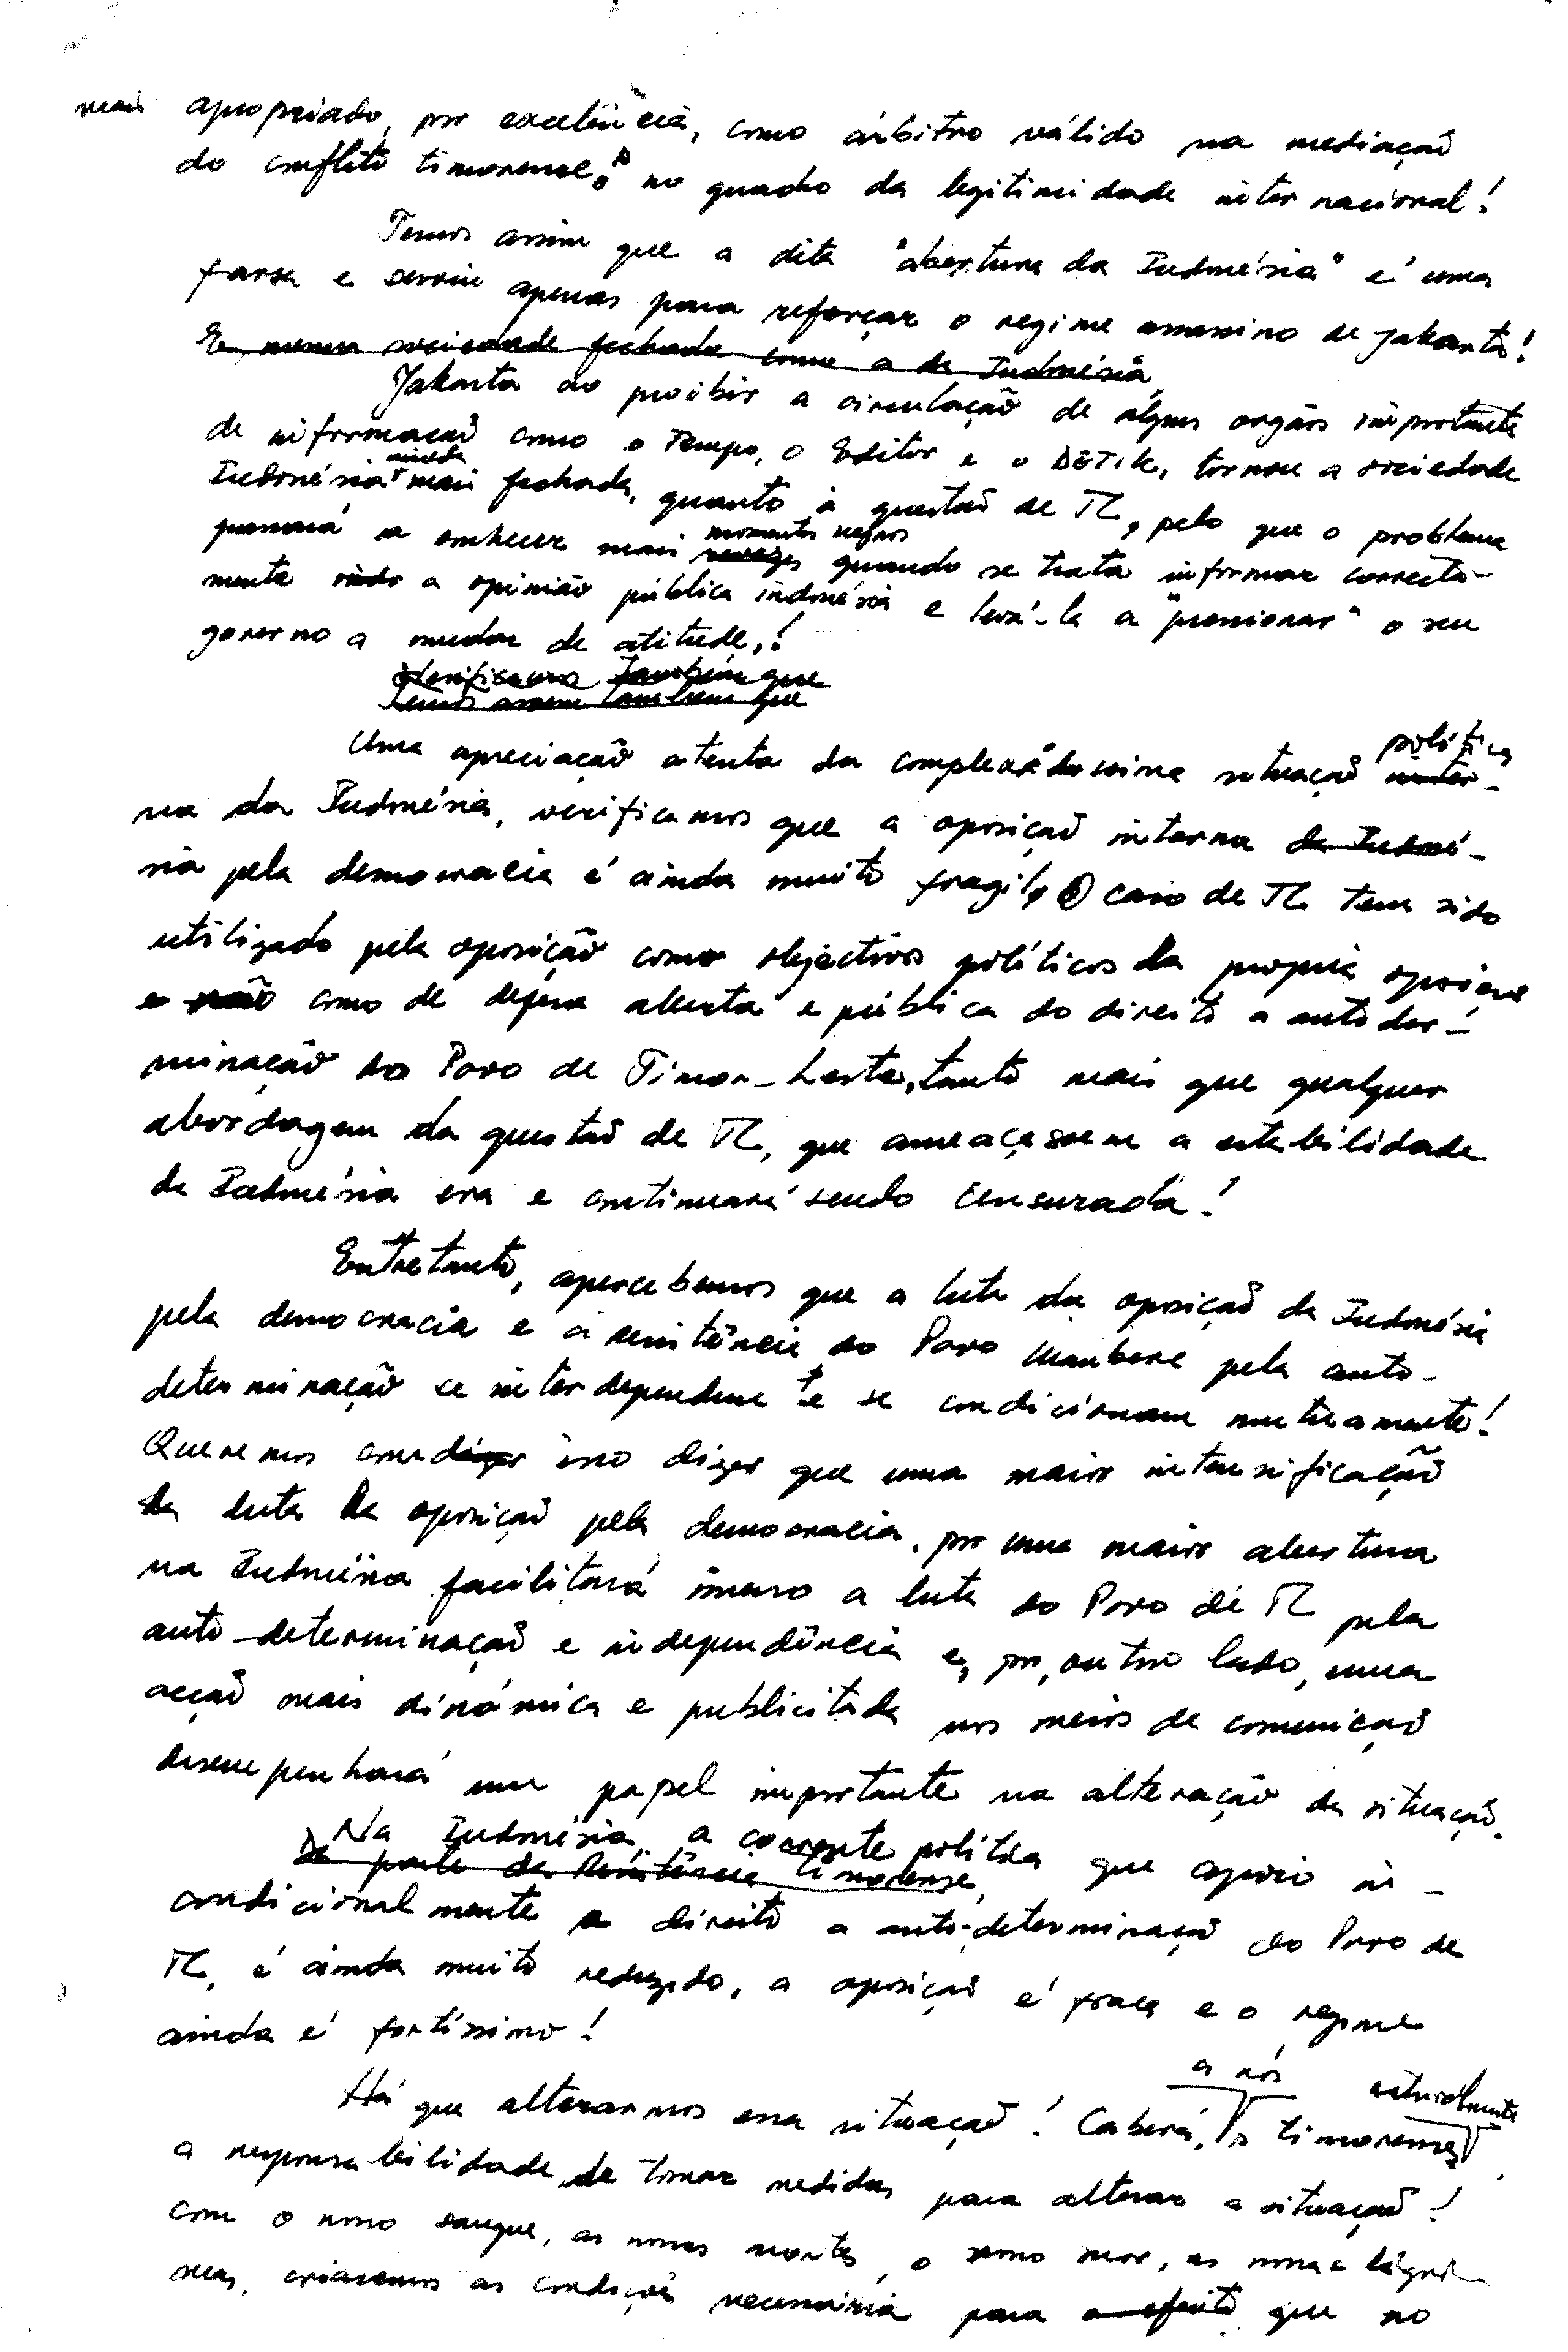 mais apropriado, por excelência, como árbitro válido na mediação
do conflito timorense, no quadro da legitimidade internacional!
Temos assim que a dita "abertura da Indonésia" é uma
farsa e serviu apenas para reforçar o regime assassino de Jakarta!
E numa sociedade fechada como a da Indonésia,
Jakarta ao proibir a circulação de alguns orgãos importante
de informação como o Tempo, o Editor e o DETIK, tornou a sociedade
Indonésia ainda mais fechada, quanto à questão de TL, pelo que o problema
passará a conhecer mais momentos negros quando se trata informar correcta-
mente a opinião pública indonésia e levá-la a "pressionar" o seu
governo a mudar de atitude,!
Verificamos também que
Temos assim também que
Uma apreciação atenta da complexadissima situação política inter-
na da Indonésia, verificamos que a oposição interna da Indoné-
sia pela democracia é ainda muito fragil, O caso de TL tem sido
utilizado pela oposição como objectivos políticos da propria oposição
e não como de defesa aberta e pública do direito a autoder-
minação do Povo de Timor-Leste, tanto mais que qualquer
abordagem da questão de TL, que ameaçassem a estabilidade
da Indonésia era e continuará sendo censurada!
Entretanto, apercebemos que a luta da oposição da Indonésia
pela democracia e a resistência do Povo Maubere pela auto-
determinação se interdependente se condicionam mutuamente!
Queremos com isso dizer que uma maior intensificação
da luta da oposição pela democracia, por uma maior abertura
na Indonésia facilitará imenso a luta do Povo de TL pela
auto-determinação e independência e, por, outro lado, uma
acção mais dinâmica e publicitada nos meios de comunicação
desempenhará um papel importante na alteração da situação.
Na Indonésia, a corrente política que apoio in-
da parte da Resistência timorense,
condicionalmente o direito a auto-determinação do Povo de
TL, é ainda muito reduzido, a oposição é fraca e o regime
ainda é fortíssimo!
Há que alterarmos essa situação! Caberá, a nós timorenses naturalmente
a responsabilidade de tomar medidas para alterar a situação!
Com o nosso sangue, as nossas mortes, o nosso suor, as nossas lágri-
mas, criaremos as condições necessária para o efeito que no